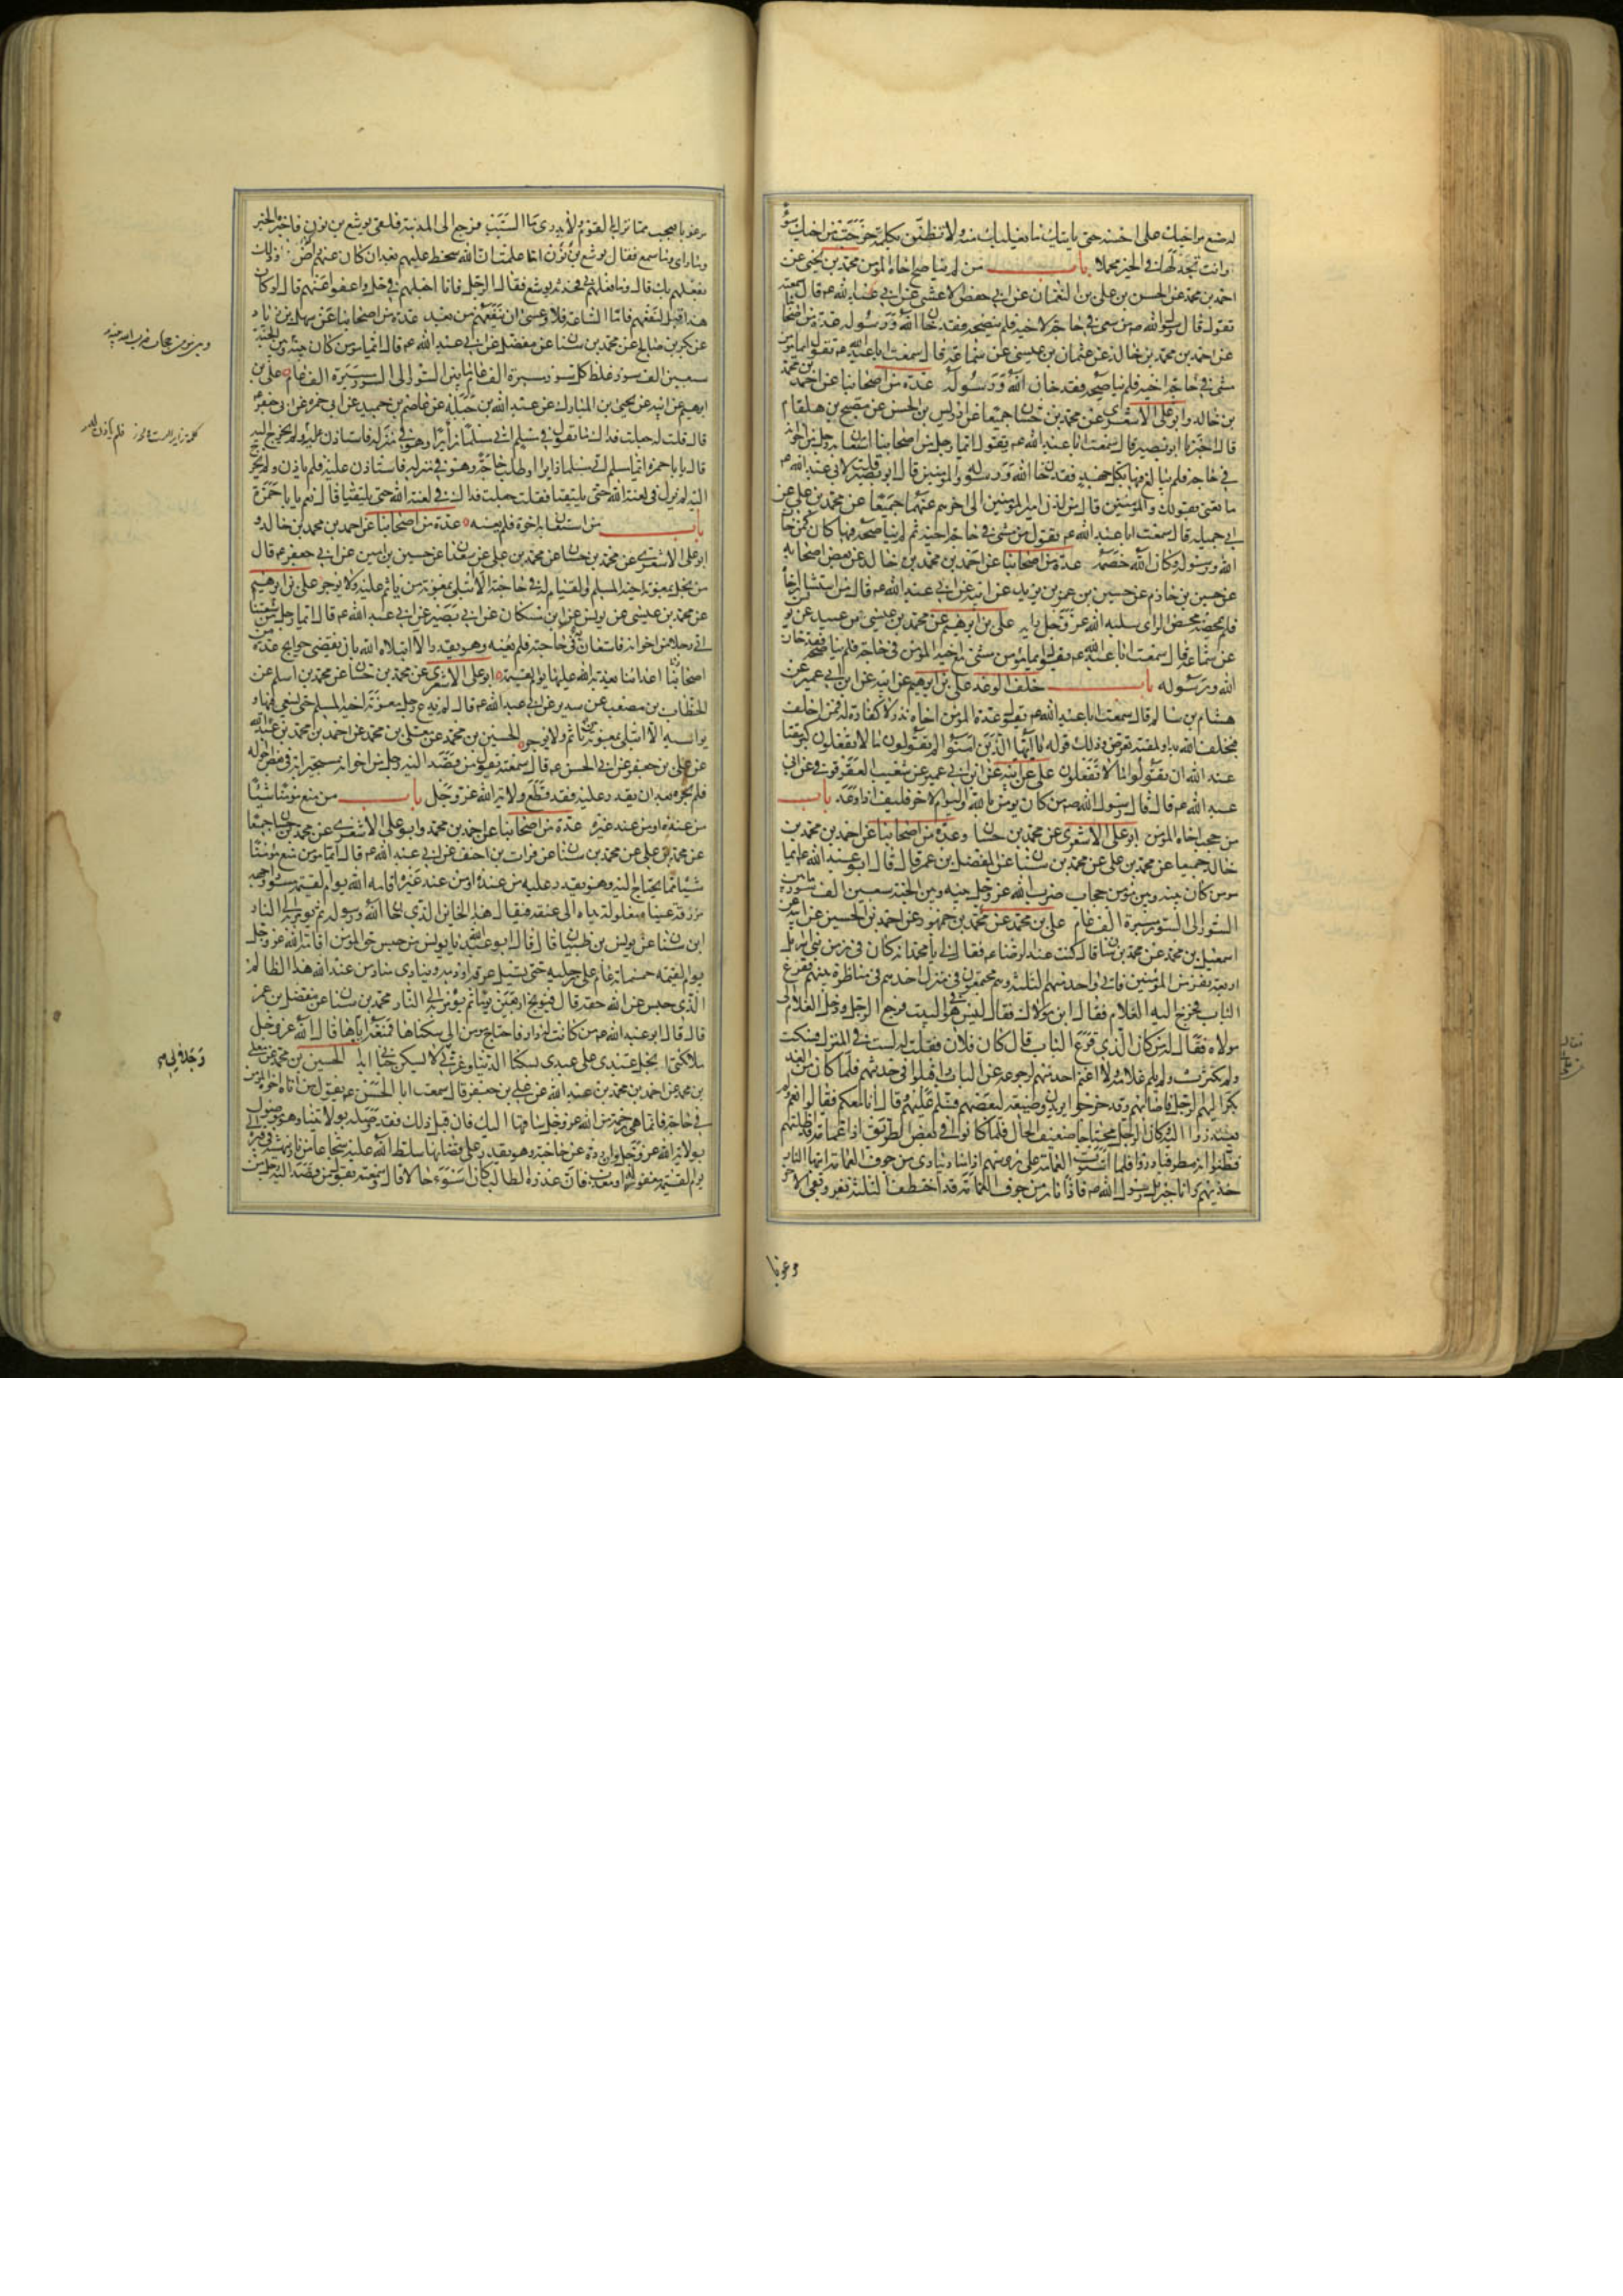 له ضع امر اخيك على احسنه حتى ياتيك ما يغلبك منه ولا تظنن بكلمة خرجت من اخيك سوءا
وانت تجد لها في الخير محملا باب من لم يناصح اخاه المؤمن محمد بن يحيى عن
احمد بن محمد عن الحسن بن علي بن النعمان عن ابي حفص الاعشى عن ابي عبد الله ع قال سمعته
يقول قال رسول الله ص من سعى في حاجة لاخيه فلم ينصحه فقد خان الله ورسوله عدة من اصحابنا
عن احمد بن محمد بن خالد عن عثمان بن عيسى عن سماعة قال سمعت ابا عبد الله ع يقول ايما مؤمن
مشى في حاجة اخيه فلم يناصحه فقد خان الله ورسوله عدة من اصحابنا عن احمد بن محمد
بن خالد وابو علي الاشعري عن محمد بن حسان جميعا عن ادريس بن الحسن عن مصبح بن هلقام
قال اخبرنا ابو بصير قال سمعت ابا عبد الله ع يقول ايما رجل من اصحابنا استعان به رجل من اخوانه
في حاجة فلم يبالغ فيها بكل جهد فقد خان الله ورسوله والمؤمنين قال ابو بصير قلت لابي عبد الله ع
ما تعني بقولك والمؤمنين قال من لدن امير المؤمنين الى اخرهم عنهما جميعا عن محمد بن علي عن
ابي جميلة قال سمعت ابا عبد الله ع يقول من مشى في حاجة اخيه ثم لم يناصحه فيها كان كمن خان
الله ورسوله وكان الله خصمه عدة من اصحابنا عن احمد بن محمد بن خالد عن بعض اصحابه
عن حسين بن حازم عن حسين بن عمر بن يزيد عن ابيه عن ابي عبد الله ع قال من استشار اخاه
فلم يمحضه محض الراى سلبه الله عز وجل رايه علي بن ابرهيم عن محمد بن عيسى بن عبيد عن يونس
عن سماعة قال سمعت ابا عبد الله ع يقول ايما مؤمن مشى مع اخيه المؤمن في حاجة فلم يناصحه فقد خان
الله ورسوله باب خلف الوعد علي بن ابرهيم عن ابيه عن ابن ابي عمير عن
هشام بن سالم قال سمعت ابا عبد الله ع يقول عدة المؤمن اخاه نذر لا كفارة له فمن اخلف
فبخلف الله بدا ولمقته تعرض وذلك قوله يا ايها الذين امنوا لم تقولون ما لا تفعلون كبر مقتا
عند الله ان تقولوا ما لا تفعلون علي عن ابيه عن ابن ابي عمير عن شعيب العقرقوفي عن ابي
عبد الله ع قال قال رسول الله ص من كان يؤمن بالله واليوم الاخر فليف اذا وعد باب
من حجب اخاه المؤمن ابو علي الاشعري عن محمد بن حسان وعدة من اصحابنا عن احمد بن محمد بن
خالد جميعا عن محمد بن علي عن محمد بن سنان عن المفضل بن عمر قال قال ابو عبد الله ع ايما
مؤمن كان بينه وبين مؤمن حجاب ضرب الله عز وجل بينه وبين الجنة سبعين الف سور ما بين
السور الى السور مسيرة الف عام علي بن محمد عن محمد بن جمهور عن احمد بن الحسين عن ابيه عن
اسمعيل بن محمد عن محمد بن سنان قال كنت عند الرضا ع فقال لي يا محمد انه كان في زمن بني اسرائيل
اربعة نفر من المؤمنين فاتى واحد منهم الثلثة وهم مجتمعون في منزل احدهم في مناظرة بينهم فقرع
الباب فخرج اليه الغلام فقال اين مولاك فقال ليس هو في البيت فرجع الرجل ودخل الغلام الى
مولاه فقال له من كان الذي قرع الباب قال كان فلان فقلت له لست في المنزل فسكت
ولم يكترث ولم يلم غلامه ولا اغتم احد منهم لرجوعه عن الباب واقبلوا في حديثهم فلما كان من الغد
بكر اليهم الرجل فاصابهم وقد خرجوا يريدون ضيعة لبعضهم فسلم عليهم وقال انا معكم فقالوا نعم ولم
يعتذروا اليه وكان الرجل محتاجا ضعيف الحال فلما كانوا في بعض الطريق اذا غمامة قد اظلتهم
فظنوا انه مطر فبادروا فلما استوت الغمامة على رؤسهم اذا مناد ينادي من جوف الغمامة ايتها النار
خذيهم وانا جبريل رسول الله فاذا نار من جوف الغمامة قد اختطفت الثلثة نفر وبقي الاخر
وبقي
مرعوبا يعجب مما نزل بالقوم ولا يدري ما السبب فرجع الى المدينة فلقي يوشع بن نون فاخبره الخبر
وما راى وما سمع فقال يوشع بن نون اما علمت ان الله سخط عليهم بعد ان كان عنهم راض وذلك
بفعلهم بك قال وما فعلهم بي فحدثه يوشع فقال الرجل فانا اجعلهم في حل واعفو عنهم قال لو كان
هذا قبل لنفعهم فاما الساعة فلا وعسى ان ينفعهم من بعد عدة من اصحابنا عن سهل بن زياد
عن بكر بن صالح عن محمد بن سنان عن مفضل عن ابي عبد الله ع قال ايما مؤمن كان بينه وبين
سبعين الف سور غلظ كل سور مسيرة الف عام ما بين السور الى السور مسيرة الف عام علي بن
ابرهيم عن ابيه عن يحيى بن المبارك عن عبد الله بن جبلة عن عاصم بن حميد عن ابي حمزة عن ابي جعفر ع
قال قلت له جعلت فداك ما تقول في مسلم اتى مسلما زائرا وهو في منزله فاستاذن عليه ولم يخرج اليه
قال يا با حمزة ايما مسلم اتى مسلما زايرا او طالب حاجة وهو في منزله فاستاذن عليه فلم ياذن ولم يخرج
اليه لم يزل في لعنة الله حتى يلتقيا فقلت جعلت فداك في لعنة الله حتى يلتقيا قال نعم يا با حمزة
باب من استعان به اخوه فلم يعنه عدة من اصحابنا عن احمد بن محمد بن خالد و
ابو علي الاشعري عن محمد بن حسان عن محمد بن علي عن سعدان عن حسين بن امين عن ابي جعفر ع قال
من بخل بمعونة اخيه المسلم والقيام له في حاجته الا ابتلي بمعونة من ياثم عليه ولا يوجر علي بن ابرهيم
عن محمد بن عيسى عن يونس عن ابن مسكان عن ابي بصير عن ابي عبد الله ع قال ايما رجل من شيعتنا
اتى رجلا من اخوانه فاستعان به في حاجته فلم يعنه وهو يقدر الا ابتلاه الله بان يقضي حوايج عدة من
اعدائنا يعذبه الله عليها يوم القيمة ابو علي الاشعري عن محمد بن حسان عن محمد بن اسلم عن
الخطاب بن مصعب عن سدير عن ابي عبد الله ع قال لم يدع رجل معونة اخيه المسلم حتى يسعى فيها و
يواسيه الا ابتلي بمعونة من ياثم ولا يوجر الحسين بن محمد عن معلى بن محمد عن احمد بن محمد بن عبد الله
عن علي بن جعفر عن ابي الحسن ع قال سمعته يقول من قصد اليه رجل من اخوانه مستجيرا به في بعض احواله
فلم يجره بعد ان يقدر عليه فقد قطع ولاية الله عز وجل باب من منع مؤمنا شيئا
من عنده او من عند غيره عدة من اصحابنا عن احمد بن محمد وابو علي الاشعري عن محمد بن حسان جميعا
عن محمد بن علي عن محمد بن سنان عن فرات بن احنف عن ابي عبد الله ع قال ايما مؤمن منع مؤمنا
شيئا مما يحتاج اليه وهو يقدر عليه من عنده او من عند غيره اقامه الله يوم القيمة مسودا وجهه
مزرقة عيناه مغلولة يداه الى عنقه فيقال هذا الخاين الذي خان الله ورسوله ثم يؤمر به الى النار
ابن سنان عن يونس بن ظبيان قال قال ابو عبد الله ع يا يونس من حبس حق المؤمن اقامه الله عز وجل
يوم القيمة خمسمائة عام على رجليه حتى يسيل عرقه او دمه وينادي مناد من عند الله هذا الظالم
الذي حبس عن الله حقه قال فيوبخ اربعين يوما ثم يؤمر به الى النار محمد بن سنان عن مفضل بن عمر
قال قال ابو عبد الله ع من كانت له دار فاحتاج مؤمن الى سكناها فمنعه اياها قال الله عز وجل
ملائكتي ابخل عبدي على عبدي بسكنا الدنيا وعزتي لا يسكن جناني ابدا الحسين بن محمد عن معلى
بن محمد عن احمد بن محمد بن عبد الله عن علي بن جعفر قال سمعت ابا الحسن ع يقول من اتاه اخوه المؤمن
في حاجة فانما هي رحمة من الله عز وجل ساقها اليه فان قبل ذلك فقد وصله بولايتنا وهو موصول
بولاية الله عز وجل وان رده عن حاجته وهو يقدر على قضائها سلط الله عليه شجاعا من نار ينهشه في قبره
يوم القيمة مغفور له او معذب فان عذره الطالب كان اسوء حالا قال وسمعته يقول من قصد اليه رجل من